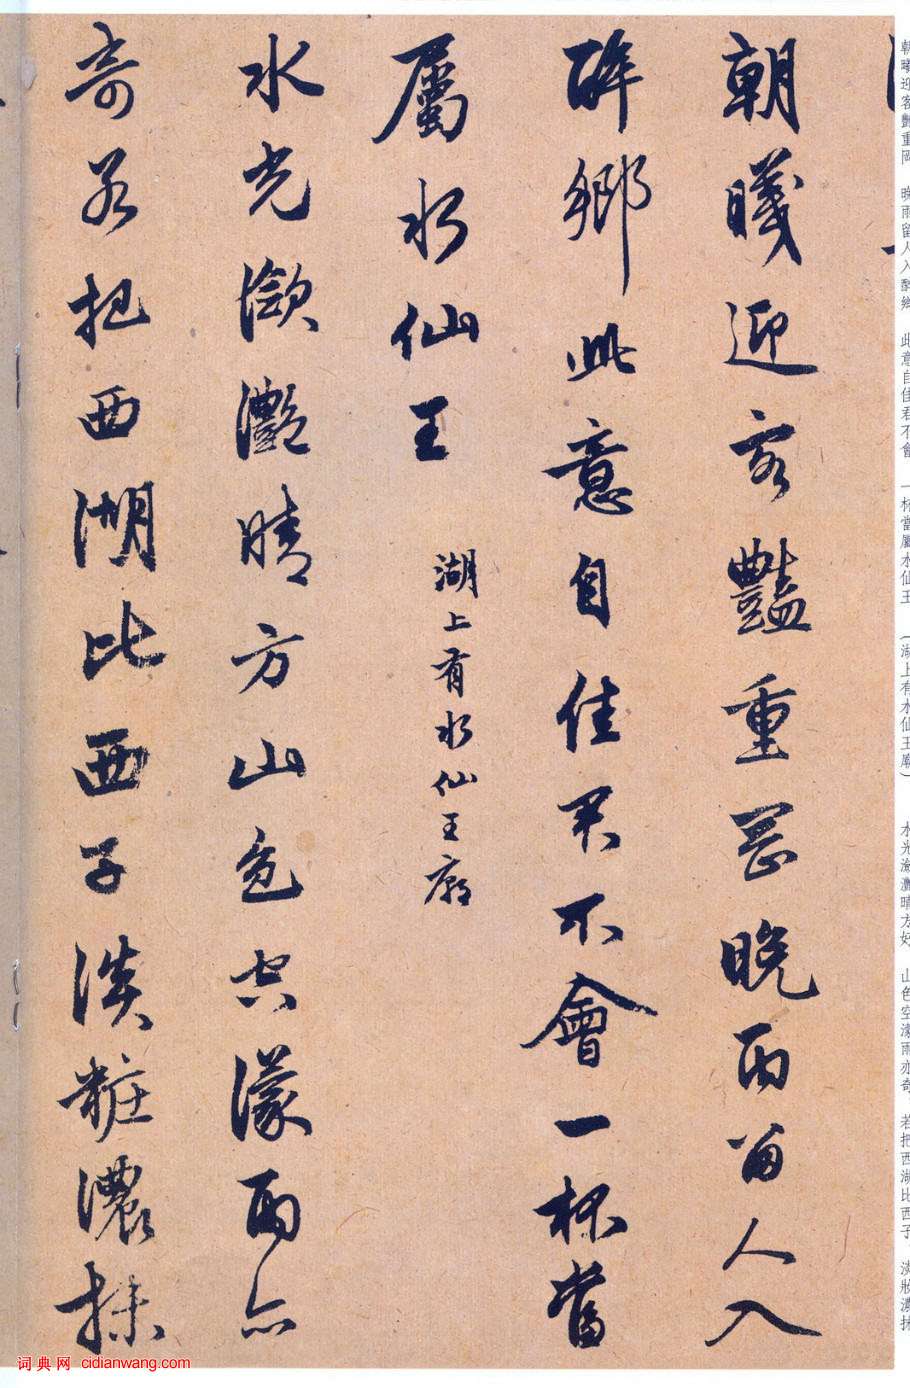 朝曦迎客艷重岡　晚雨留人入醉鄉　此意自佳君不會　一杯當屬水仙王　（湖上有水仙王廟）　水光瀲灩晴方好　山色空濛雨亦奇　若把西湖比西子　淡妝濃抹
朝曦迎客豔重岡晚雨留人入
醉鄉此意自佳君不會一杯當
屬水仙王 湖上有水仙王廟
水光瀲灧晴方山色空濛雨亦
奇若把西湖比西子淡粧濃抹
词典网 cidianwang.com